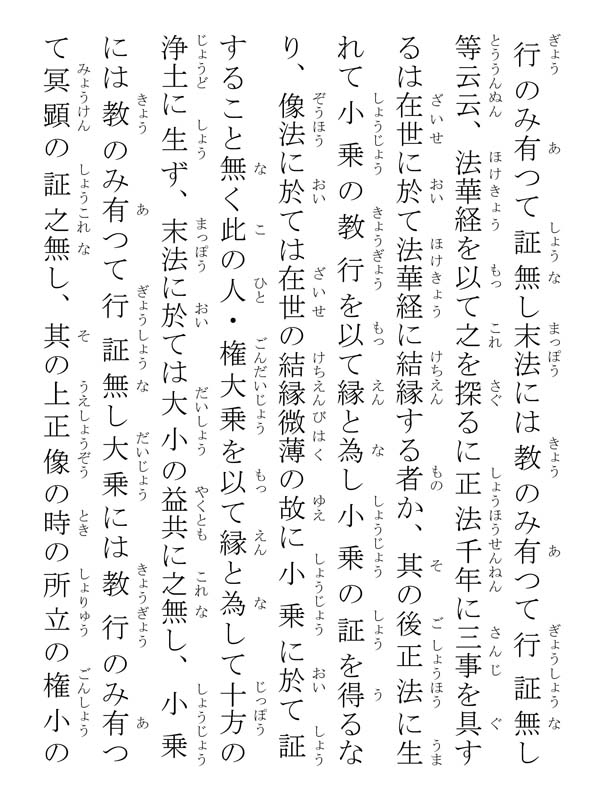 行のみ有つて証無し末法には教のみ有つて行証無し
等云云、法華経を以て之を探るに正法千年に三事を具す
るは在世に於て法華経に結縁する者か、其の後正法に生
れて小乗の教行を以て縁と為し小乗の証を得るな
り、像法に於ては在世の結縁微薄の故に小乗に於て証
すること無く此の人・権大乗を以て縁と為して十方の
浄土に生ず、末法に於ては大小の益共に之無し、小乗
には教のみ有つて行証無し大乗には教行のみ有つ
て冥顕の証之無し、其の上正像の時の所立の権小の